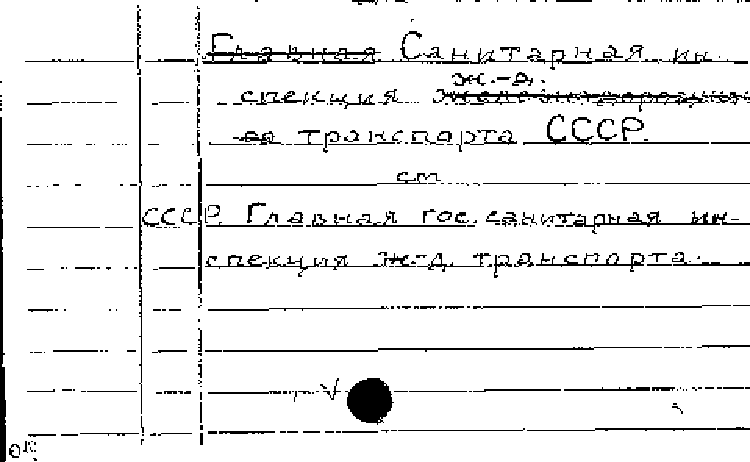 Главная Санитарная ин-
ж.-д.
спекция железнодорожно-
го транспорта СССР
см
СССР. Главная гос. санитарная ин-
спекция ж-д. транспорта.